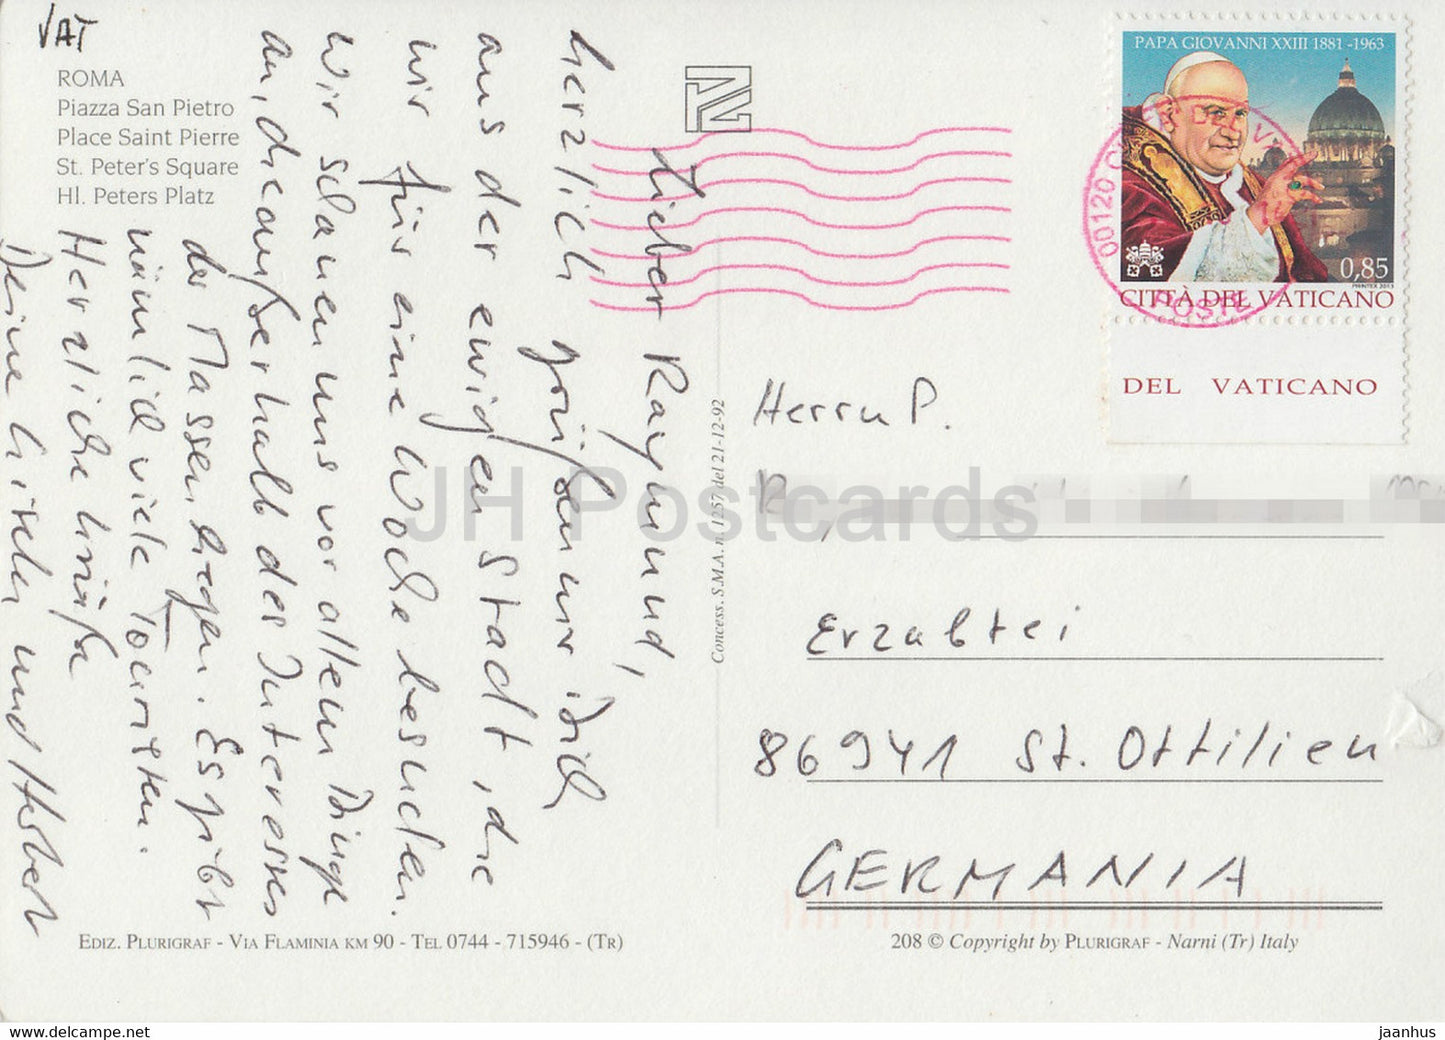 VAT
ROMA
Piazza San Pietro
Place Saint Pierre
St. Peter's Square
Hl. Peters Platz
Lieber Raymund,
herzlich grüßen wir Dich
aus der ewigen Stadt, die
wir für eine Woche besuchen.
Wir schauen uns vor allem Dinge
an, die außerhalb des Interesses
der Massen liegen. Es gibt
nämlich viele Touristen.
Herzliche Grüße
Deine und Herbert
PAPA GIOVANNI XXIII 1881 -1963
0,85
PRINTEX 2013
CITTÀ DEL VATICANO
DEL VATICANO
00120
POSTE
Herrn P.
Erzabtei
86941 St. Ottilien
GERMANIA
Concess. S.M.A. n. 1257 del 21-12-92
JH Postcards
EDIZ. PLURIGRAF - VIA FLAMINIA KM 90 - TEL 0744 - 715946 - (TR)
208 © Copyright by PLURIGRAF - Narni (Tr) Italy
www.delcampe.net
jaanhus